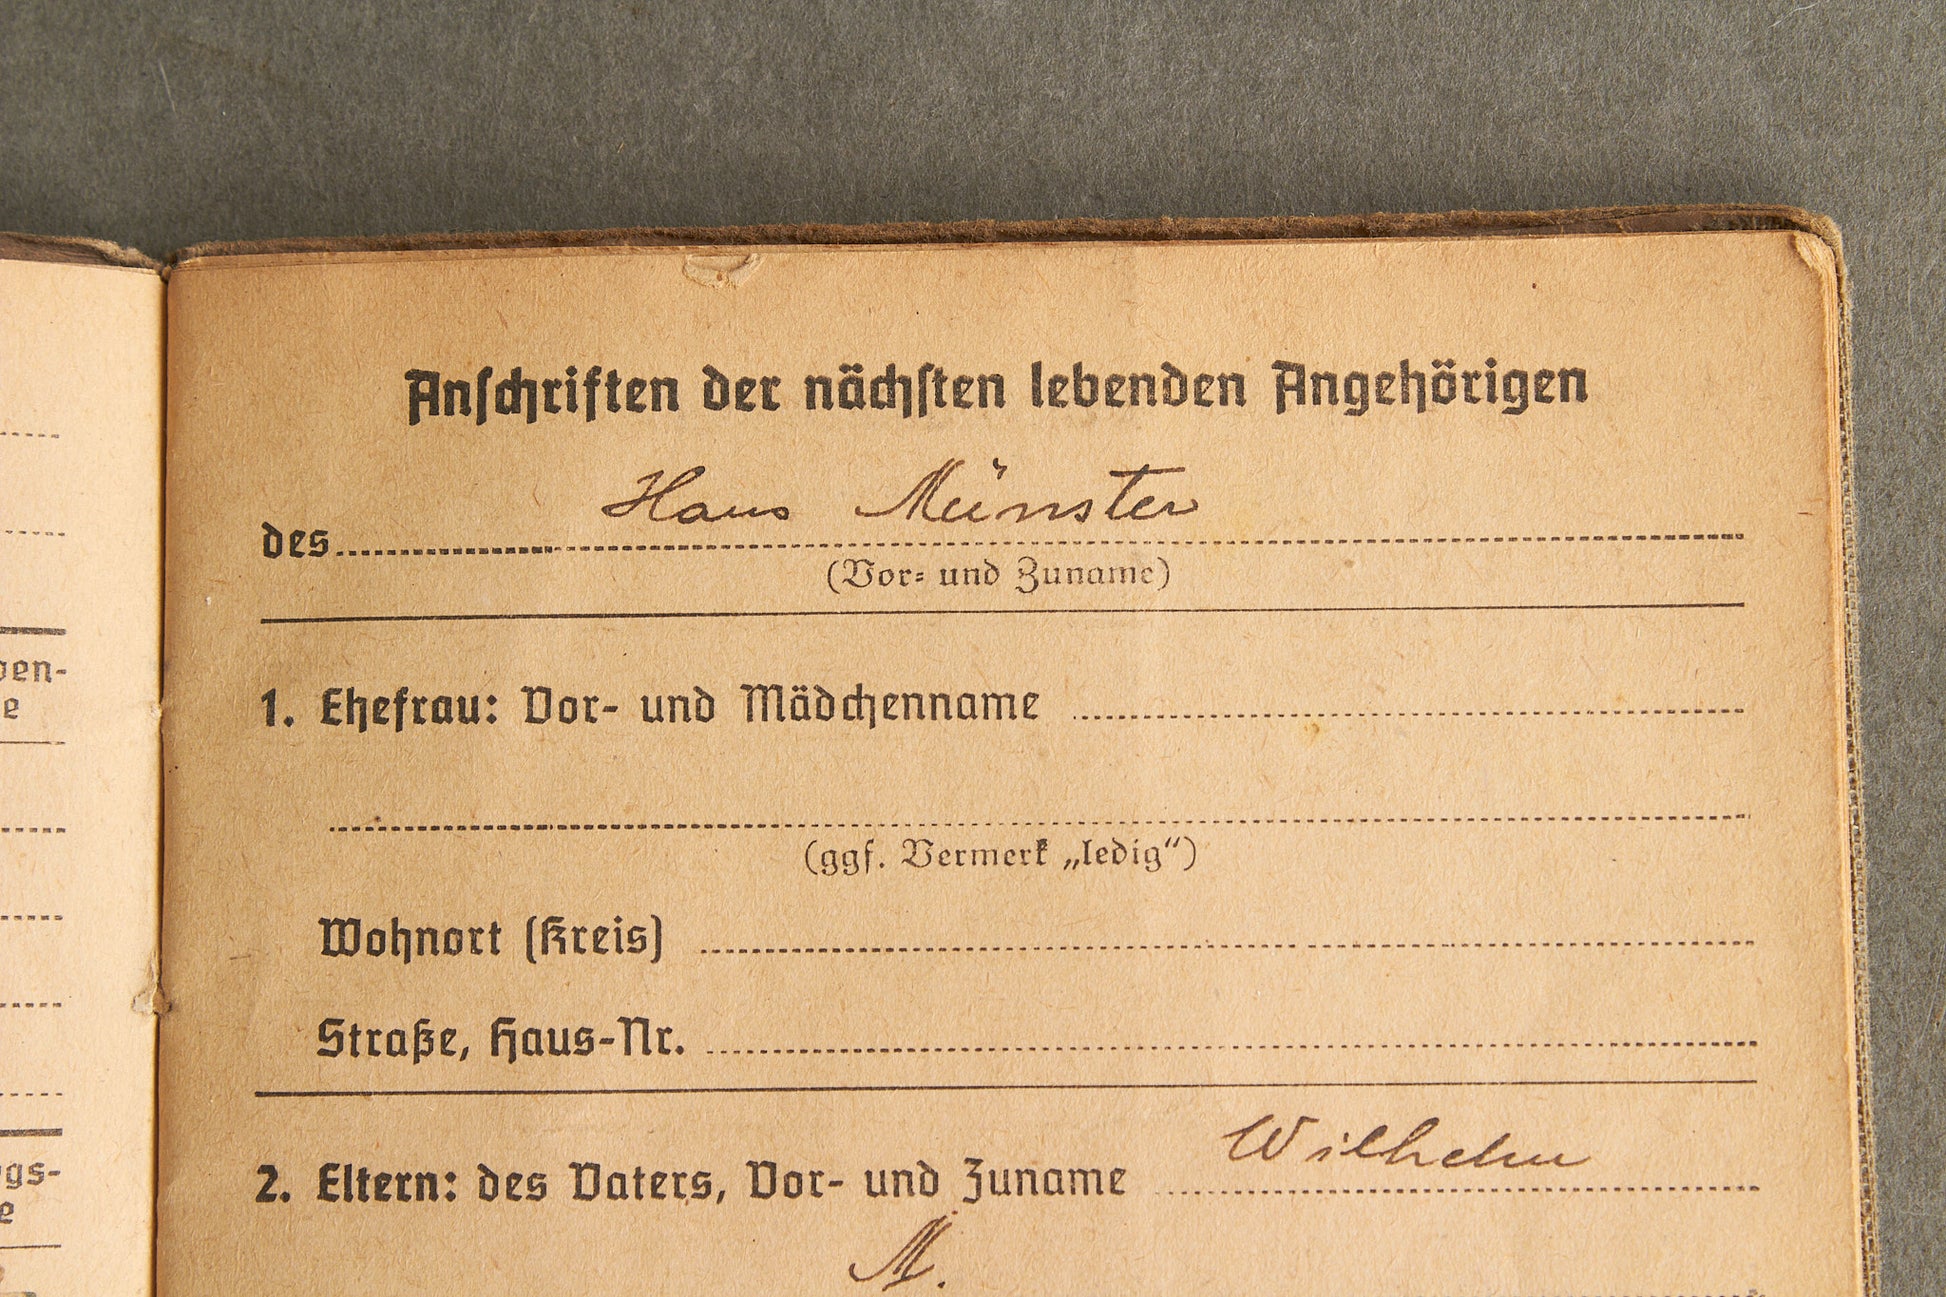 Anschriften der nächsten lebenden Angehörigen
Hans Münster
des
(Vor- und Zuname)
1. Ehefrau: Vor- und Mädchenname
(ggf. Vermerk „ledig“)
Wohnort (Kreis)
Straße, Haus-Nr.
Wilhelm
2. Eltern: des Vaters, Vor- und Zuname
M.